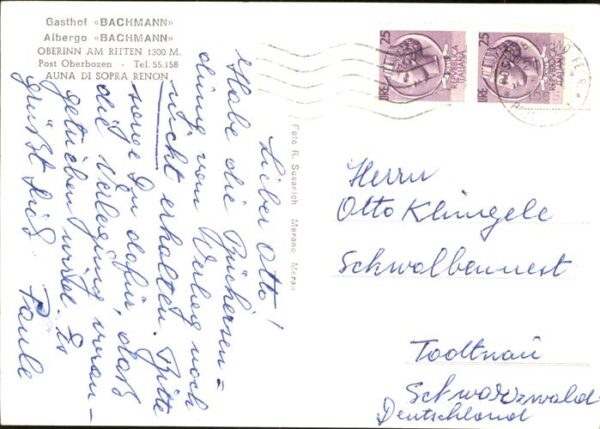 Gasthof «BACHMANN»
Albergo «BACHMANN»
OBERINN AM RITTEN 1300 M.
Post Oberbozen - Tel. 55.158
AUNA DI SOPRA RENON
Lieber Otto!
Habe die Büchersen=
dung vom Verlag noch
nicht erhalten. Bitte
sorge Du dafür, daß
die Verlegung voran-
getrieben wird. Es
grüßt Dich
Paula
Foto R. Susarich Merano Meran
LIRE 25
REPUBBLICA
ITALIANA
LIRE 25
REPUBBLICA
ITALIANA
Herrn
Otto Klingele
Schwalbennest
Todtnau
Schwarzwald
Deutschland